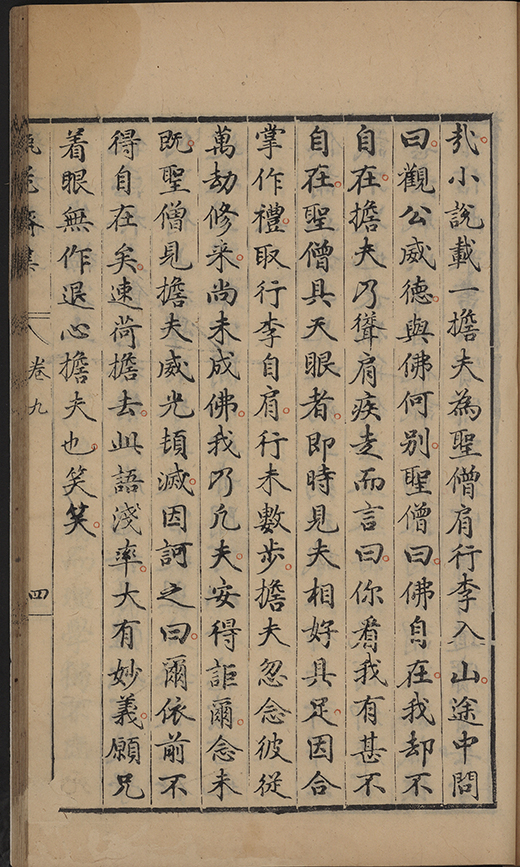 哉小說載一擔夫為聖僧肩行李入山途中問
曰觀公威德與佛何別聖僧曰佛自在我却不
自在擔夫乃聳肩疾走而言曰你看我有甚不
自在聖僧具天眼者即時見夫相好具足因合
掌作禮取行李自肩行未數步擔夫忽念彼從
萬劫修來尚未成佛我乃凡夫安得詎爾念未
既聖僧見擔夫威光頓滅因訶之曰爾依前不
得自在矣速荷擔去此語淺率大有妙義願兄
着眼無作退心擔夫也笑笑
卷九
四